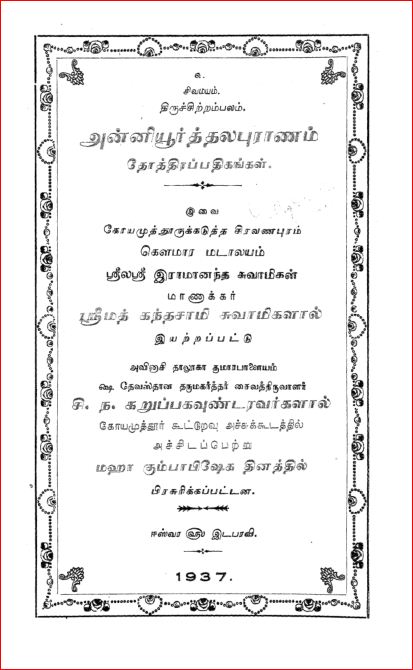 உ
சிவமயம்.
திருச்சிற்றம்பலம்.
அன்னியூர்த்தலபுராணம்
தோத்திரப்பதிகங்கள்.
இவை
கோயமுத்தூருக்கடுத்த சிரவணபுரம்
கௌமார மடாலயம்
ஸ்ரீலஸ்ரீ இராமானந்த சுவாமிகள்
மாணாக்கர்
ஸ்ரீமத் கந்தசாமி சுவாமிகளால்
இயற்றப்பட்டு
அவிநாசி தாலூகா குமாரபாளையம்
ஷ தேவஸ்தான தருமகர்த்தர் சைவத்திருவாளர்
சி. ந. கறுப்பகவுண்டரவர்களால்
கோயமுத்தூர் கூட்டுறவு அச்சுக்கூடத்தில்
அச்சிடப்பெற்று
மஹா கும்பாபிஷேக தினத்தில்
பிரசுரிக்கப்பட்டன.
ஈஸ்வர ௵ இடபரவி.
1937.